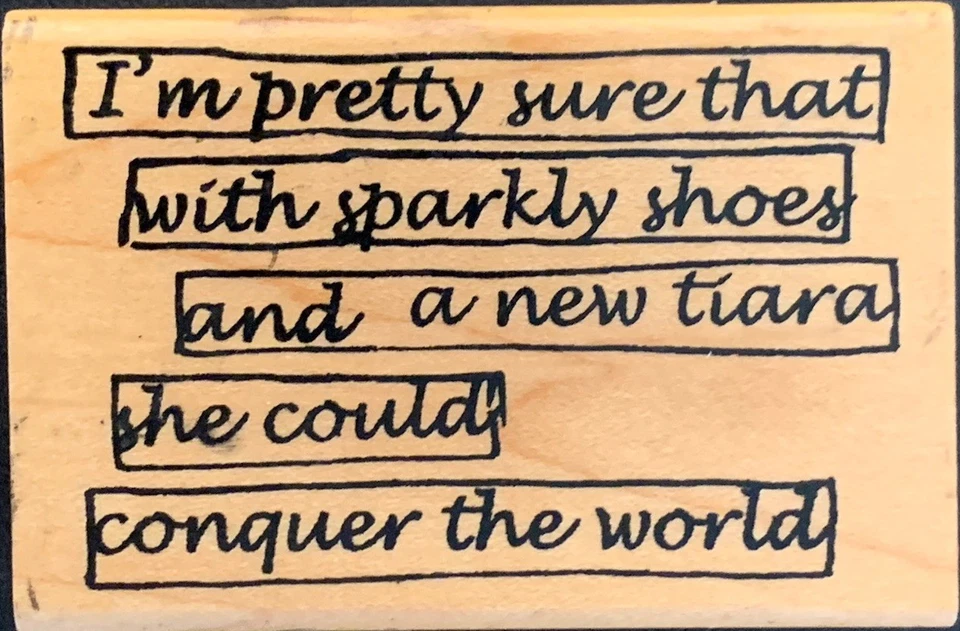 I'm pretty sure that
with sparkly shoes
and a new tiara
she could
conquer the world